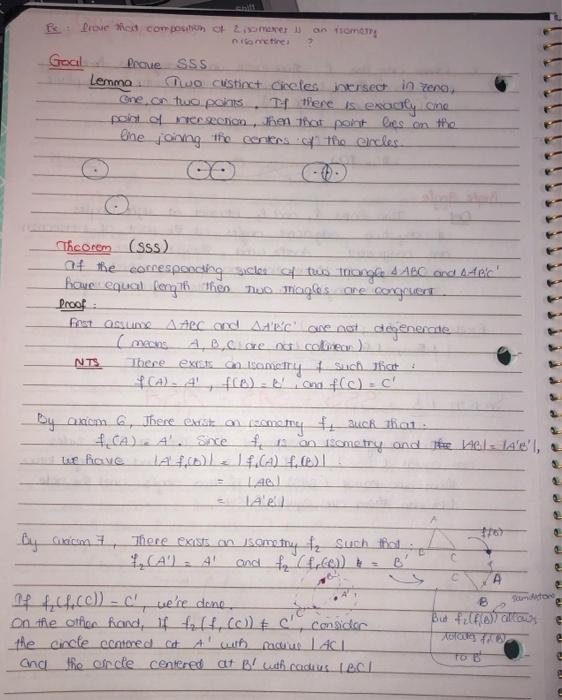 Ex: Prove that composition of 2 isometries is an isometry
n isometries ?
Goal Prove SSS
Lemma: Two distinct circles intersect in zero,
one, or two points. If there is exactly one
point of intersection, then that point lies on the
line joining the centers of the circles.
Theorem (SSS)
If the corresponding sides of two triangle Δ ABC and ΔA'B'C'
have equal length then two triagles are congruent
Proof:
First assume ΔABC and ΔA'B'C' are not degenerate
(means A, B, C are not collinear)
NTS There exists an isometry f such that :
f(A) = A', f(B) = B', and f(C) = C'
By axiom 6, There exist an isometry f₁ such that:
f₁(A) = A'. Since f₁ is an isometry and |AB| = |A'B'|,
we have |A' f₁(B)| = |f₁(A) f₁(B)|
= |AB|
= |A'B'|
By axiom 7, There exists an isometry f₂ such that:
f₂(A') = A' and f₂(f₁(B)) = B'
A
B C
f₁(B)
C A
B
B'
A'
C'
If f₂(f₁(C)) = C', we're done.
On the other hand, if f₂(f₁(C)) ≠ C', consider
the circle centered at A' with radius |AC|
and the circle centered at B' with radius |BC|
But f₂(f₁(B)) allows
rotates f₁(B)
to B'